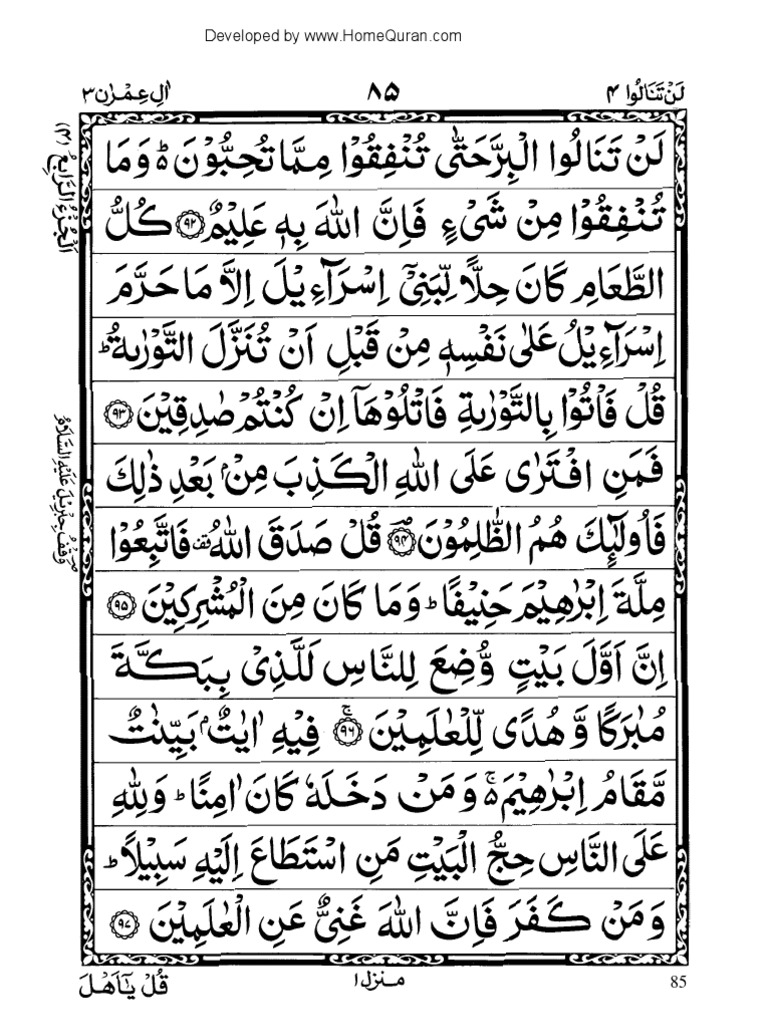 Developed by www.HomeQuran.com
لَنْ تَنَالُوا ٤ ٨٥ اٰلِ عِمْرٰن ٣
لَنْ تَنَالُوا الْبِرَّ حَتّٰى تُنْفِقُوْا مِمَّا تُحِبُّوْنَ ؕ وَ مَا
تُنْفِقُوْا مِنْ شَیْءٍ فَاِنَّ اللّٰهَ بِهٖ عَلِیْمٌ ﴿۹۲﴾ كُلُّ
الطَّعَامِ كَانَ حِلًّا لِّبَنِیْۤ اِسْرَآءِیْلَ اِلَّا مَا حَرَّمَ
اِسْرَآءِیْلُ عَلٰى نَفْسِهٖ مِنْ قَبْلِ اَنْ تُنَزَّلَ التَّوْرٰىةُ ؕ
قُلْ فَاْتُوْا بِالتَّوْرٰىةِ فَاتْلُوْهَاۤ اِنْ كُنْتُمْ صٰدِقِیْنَ ﴿۹۳﴾
فَمَنِ افْتَرٰى عَلَى اللّٰهِ الْكَذِبَ مِنْۢ بَعْدِ ذٰلِكَ
فَاُولٰٓىِٕكَ هُمُ الظّٰلِمُوْنَ ﴿۹۴﴾ؔ قُلْ صَدَقَ اللّٰهُ ۫ فَاتَّبِعُوْا
مِلَّةَ اِبْرٰهِیْمَ حَنِیْفًا ؕ وَ مَا كَانَ مِنَ الْمُشْرِكِیْنَ ﴿۹۵﴾
اِنَّ اَوَّلَ بَیْتٍ وُّضِعَ لِلنَّاسِ لَلَّذِیْ بِبَكَّةَ
مُبٰرَكًا وَّ هُدًى لِّلْعٰلَمِیْنَ ﴿۹۶﴾ۚ فِیْهِ اٰیٰتٌۢ بَیِّنٰتٌ
مَّقَامُ اِبْرٰهِیْمَ ۚ۬ وَ مَنْ دَخَلَهٗ كَانَ اٰمِنًا ؕ وَ لِلّٰهِ
عَلَى النَّاسِ حِجُّ الْبَیْتِ مَنِ اسْتَطَاعَ اِلَیْهِ سَبِیْلًا ؕ
وَ مَنْ كَفَرَ فَاِنَّ اللّٰهَ غَنِیٌّ عَنِ الْعٰلَمِیْنَ ﴿۹۷﴾
اَلْجُزْءُ الرَّابِعُ (٤)
وَقْفُ جِبْرِیْلَ عَلَیْهِ السَّلَامُ
85 منزل ١ قُلْ یٰۤاَهْلَ